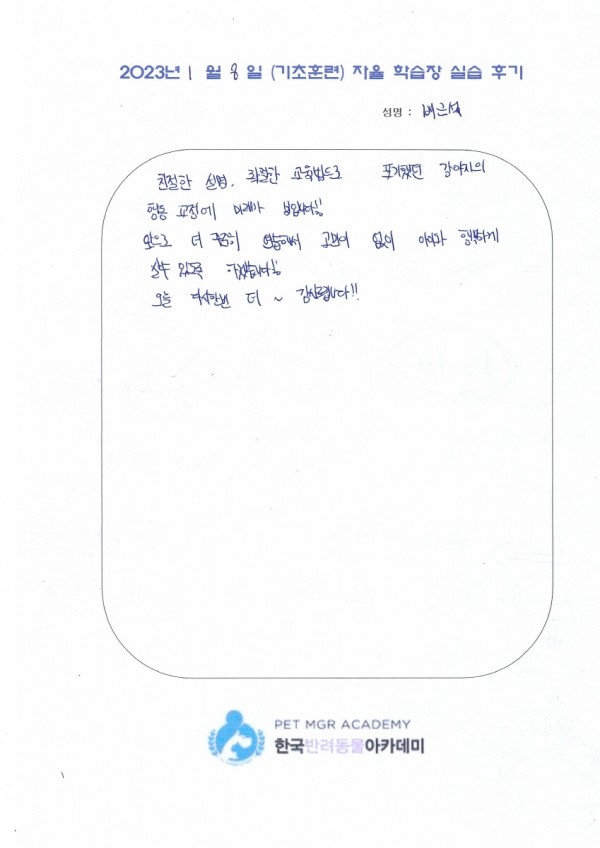 2023년 1 월 8 일 (기초훈련) 자율 학습장 실습 후기
성명 : 배근석
친절한 설명, 확실한 교육법으로 포기했던 강아지의
행동 교정에 미래가 보입니다!!
앞으로 더 꾸준히 연습해서 고민이 없이 아이가 행복하게
살수 있도록 하겠습니다!!
오늘 다시한번 더 ~ 감사드립니다!!
PET MGR ACADEMY
한국반려동물아카데미